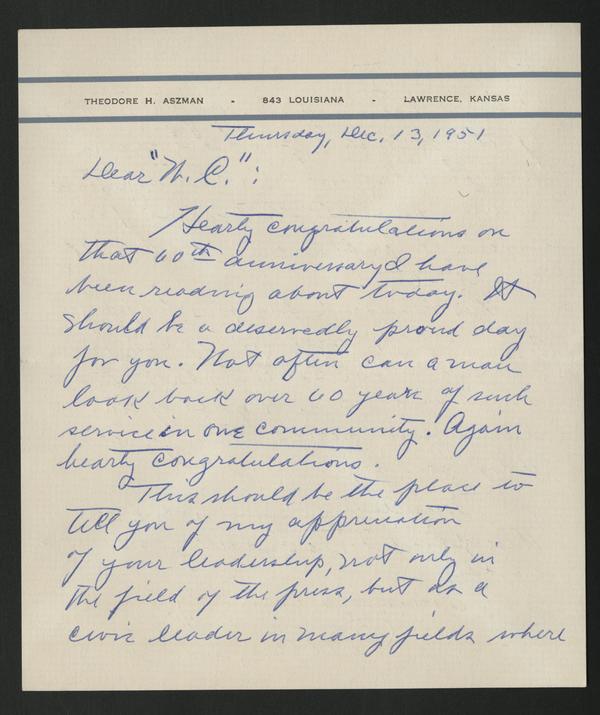 THEODORE H. ASZMAN - 843 LOUISIANA - LAWRENCE, KANSAS
Thursday, Dec. 13, 1951
Dear "W. C.":
Hearty congratulations on
that 60th anniversary I have
been reading about today. It
should be a deservedly proud day
for you. Not often can a man
look back over 60 years of such
service in one community. Again
hearty congratulations.
This should be the place to
tell you of my appreciation
of your leadership, not only in
the field of the press, but as a
civic leader in many fields where